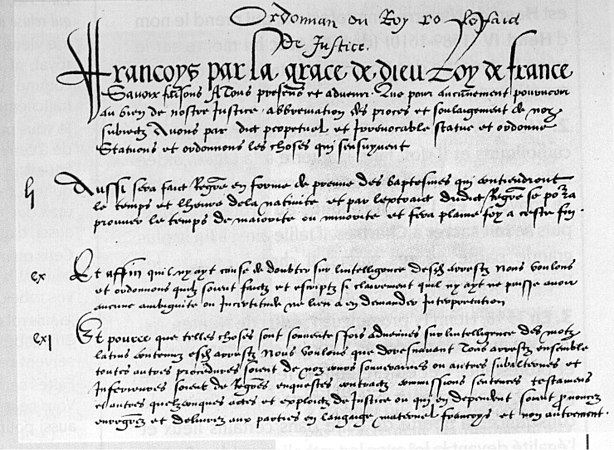 Ordonnan du Roy le faid
de Justice.
Francoys par la grace de dieu Roy de france
Savoir faisons A Tous presens et advenir Que pour aucunement pourveoir
au bien de nostre Justice abbreviation des proces et soulaigement de noz
subiectz Avons par edict perpetuel et Irrevocable statue et ordonne
Statuons et ordonnons les choses qui sensuyvent
Aussi sera faict Regre en forme de preuve des baptesmes qui contiendront
le temps et lheure de la nativite et par lextraict dudict Regre se pora
prouver le temps de maiorite ou minorite et fera plaine foy a ceste fin.
cx Et affin quil ny ayt cause de doubter sur lintelligence desd arrestz Nous voulons
et ordonnons quilz soient faictz et escriptz si clairement quil ny ayt ne puisse avoir
aucune ambiguite ou Incertitude ne lieu a en demander Interpretation
cxi Et pource que telles choses sont souventesfois advenues sur lintelligence des motz
latins contenuz esd arrestz Nous voulons que doresnavant Tous arrestz ensemble
toutes autres procedures soient de noz cours souveraines ou autres subalternes et
Inferieures soient de Regres enquestes contractz commissions sentences testamens
et autres quelzconques actes et exploictz de Justice ou qui en dependent soient prononcez
enregrez et delivrez aux parties en langaige maternel francoys et non autrement.